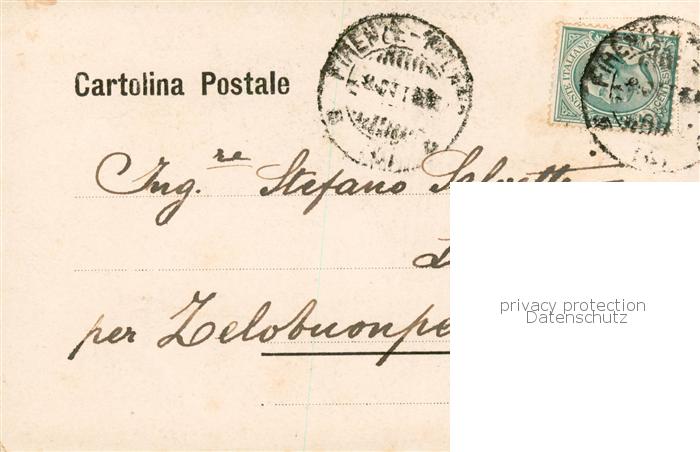 Cartolina Postale
FIRENZE
POSTE ITALIANE
FIRENZE
Ing.re Stefano
per Zelobuonpe
privacy protection
Datenschutz